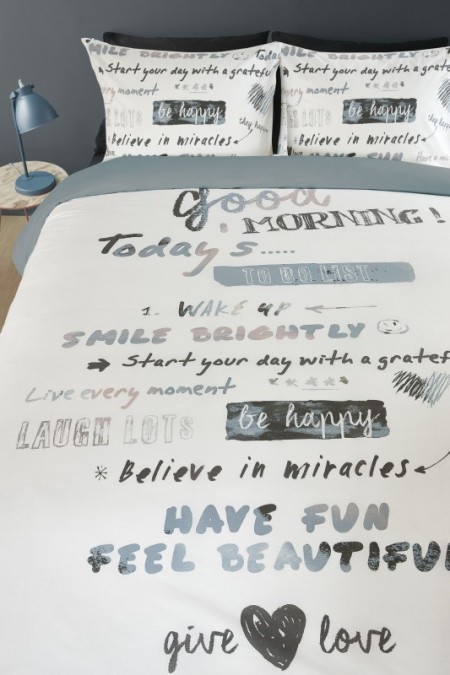 SMILE BRIGHTLY Today
Start your day with a gratefu
every moment
LOTS be happy
Believe in miracles
HAVE FUN
SMILE BRIGHTLY Today
Start your day with a grateful
every moment
LOTS be happy
stay happy
Believe in miracles
HAVE FUN Have a
good
MORNING!
Today's.....
TO DO LIST
1. WAKE up
SMILE BRIGHTLY
Start your day with a gratef
Live every moment
LAUGH LOTS be happy
* Believe in miracles
HAVE FUN
FEEL BEAUTIFUL
give love